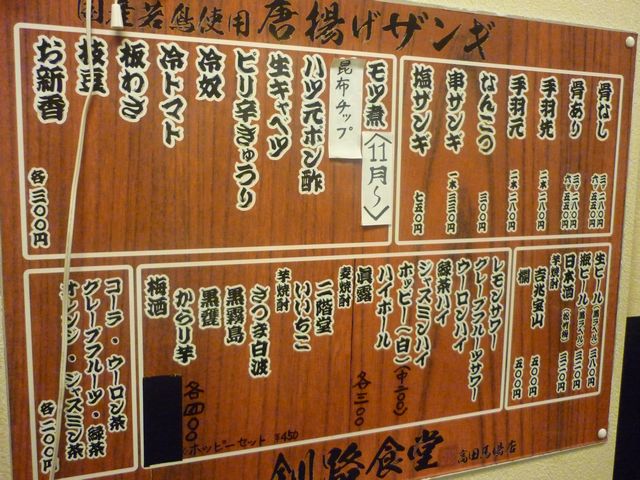 国産若鳥使用 唐揚げザンギ
骨なし 三ヶ 二八〇円
六ヶ 五五〇円
骨あり 三ヶ 二八〇円
六ヶ 五五〇円
手羽先 二本 二八〇円
手羽元 二本 二八〇円
なんこつ 三〇〇円
串ザンギ 一本 三三〇円
塩ザンギ 七五〇円
モツ煮〈11月〜〉
昆布チップ
ハツ元ポン酢
生キャベツ
ピリ辛きゅうり
冷奴
冷トマト
板わさ
枝豆
お新香
各三〇〇円
生ビール(黒ラベル) 三八〇円
瓶ビール(黒ラベル) 三二〇円
日本酒(松竹梅) 三二〇円
芋焼酎
吉兆宝山 五〇〇円
欄 五〇〇円
レモンサワー
グレープフルーツサワー
ウーロンハイ
ジャスミンハイ
緑茶ハイ
ホッピー(白)(中二〇〇)
ハイボール
眞露
各三〇〇
麦焼酎
二階堂
いいちこ
芋焼酎
さつま白波
黒霧島
黒甕
からり芋
梅酒
各四〇〇
ホッピーセット ¥450
コーラ・ウーロン茶
グレープフルーツ・緑茶
オレンジ・ジャスミン茶
各二〇〇円
釧路食堂 高田馬場店